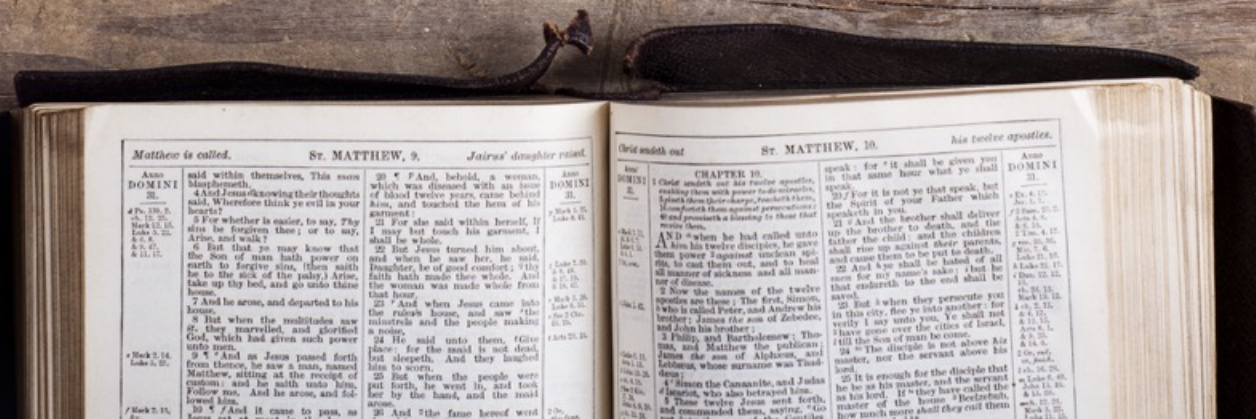 Matthew is called.
ST. MATTHEW, 9.
Jairus' daughter raised.
Anno
DOMINI
31.
said within themselves, This man
blasphemeth.
4 And Jesus knowing their thoughts
said, Wherefore think ye evil in your
hearts?
5 For whether is easier, to say, Thy
sins be forgiven thee; or to say,
Arise, and walk?
6 But that ye may know that
the Son of man hath power on
earth to forgive sins, (then saith
he to the sick of the palsy,) Arise,
take up thy bed, and go unto thine
house.
7 And he arose, and departed to his
house.
8 But when the multitudes saw
it, they marvelled, and glorified
God, which had given such power
unto men.
9 ¶ And as Jesus passed forth
from thence, he saw a man, named
Matthew, sitting at the receipt of
custom: and he saith unto him,
Follow me. And he arose, and fol-
lowed him.
10 ¶ And it came to pass, as
20 ¶ And, behold, a woman,
which was diseased with an issue
of blood twelve years, came behind
him, and touched the hem of his
garment:
21 For she said within herself, If
I may but touch his garment, I
shall be whole.
22 But Jesus turned him about,
and when he saw her, he said,
Daughter, be of good comfort; thy
faith hath made thee whole. And
the woman was made whole from
that hour.
23 And when Jesus came into
the ruler's house, and saw the
minstrels and the people making
a noise,
24 He said unto them, Give
place: for the maid is not dead,
but sleepeth. And they laughed
him to scorn.
25 But when the people were
put forth, he went in, and took
her by the hand, and the maid
arose.
26 And the fame hereof went
Anno
DOMINI
31.
Christ sendeth out
ST. MATTHEW, 10.
his twelve apostles.
CHAPTER 10.
1 Christ sendeth out his twelve apostles,
enabling them with power to do miracles,
AND when he had called unto
him his twelve disciples, he gave
them power against unclean spi-
rits, to cast them out, and to heal
all manner of sickness and all man-
ner of disease.
2 Now the names of the twelve
apostles are these; The first, Simon,
who is called Peter, and Andrew his
brother; James the son of Zebedee,
and John his brother;
3 Philip, and Bartholomew; Tho-
mas, and Matthew the publican;
James the son of Alphæus, and
Lebbæus, whose surname was Thad-
dæus;
4 Simon the Canaanite, and Judas
Iscariot, who also betrayed him.
5 These twelve Jesus sent forth,
and commanded them, saying, Go
speak: for it shall be given you
in that same hour what ye shall
speak.
20 For it is not ye that speak, but
the Spirit of your Father which
speaketh in you.
21 And the brother shall deliver
up the brother to death, and the
father the child: and the children
shall rise up against their parents,
and cause them to be put to death.
22 And ye shall be hated of all
men for my name's sake: but he
that endureth to the end shall be
saved.
23 But when they persecute you
in this city, flee ye into another: for
verily I say unto you, Ye shall not
have gone over the cities of Israel,
till the Son of man be come.
24 The disciple is not above his
master, nor the servant above his
lord.
25 It is enough for the disciple that
he be as his master, and the servant
as his lord. If they have called the
master of the house Beelzebub,
how much more shall they call them
Anno
DOMINI
31.